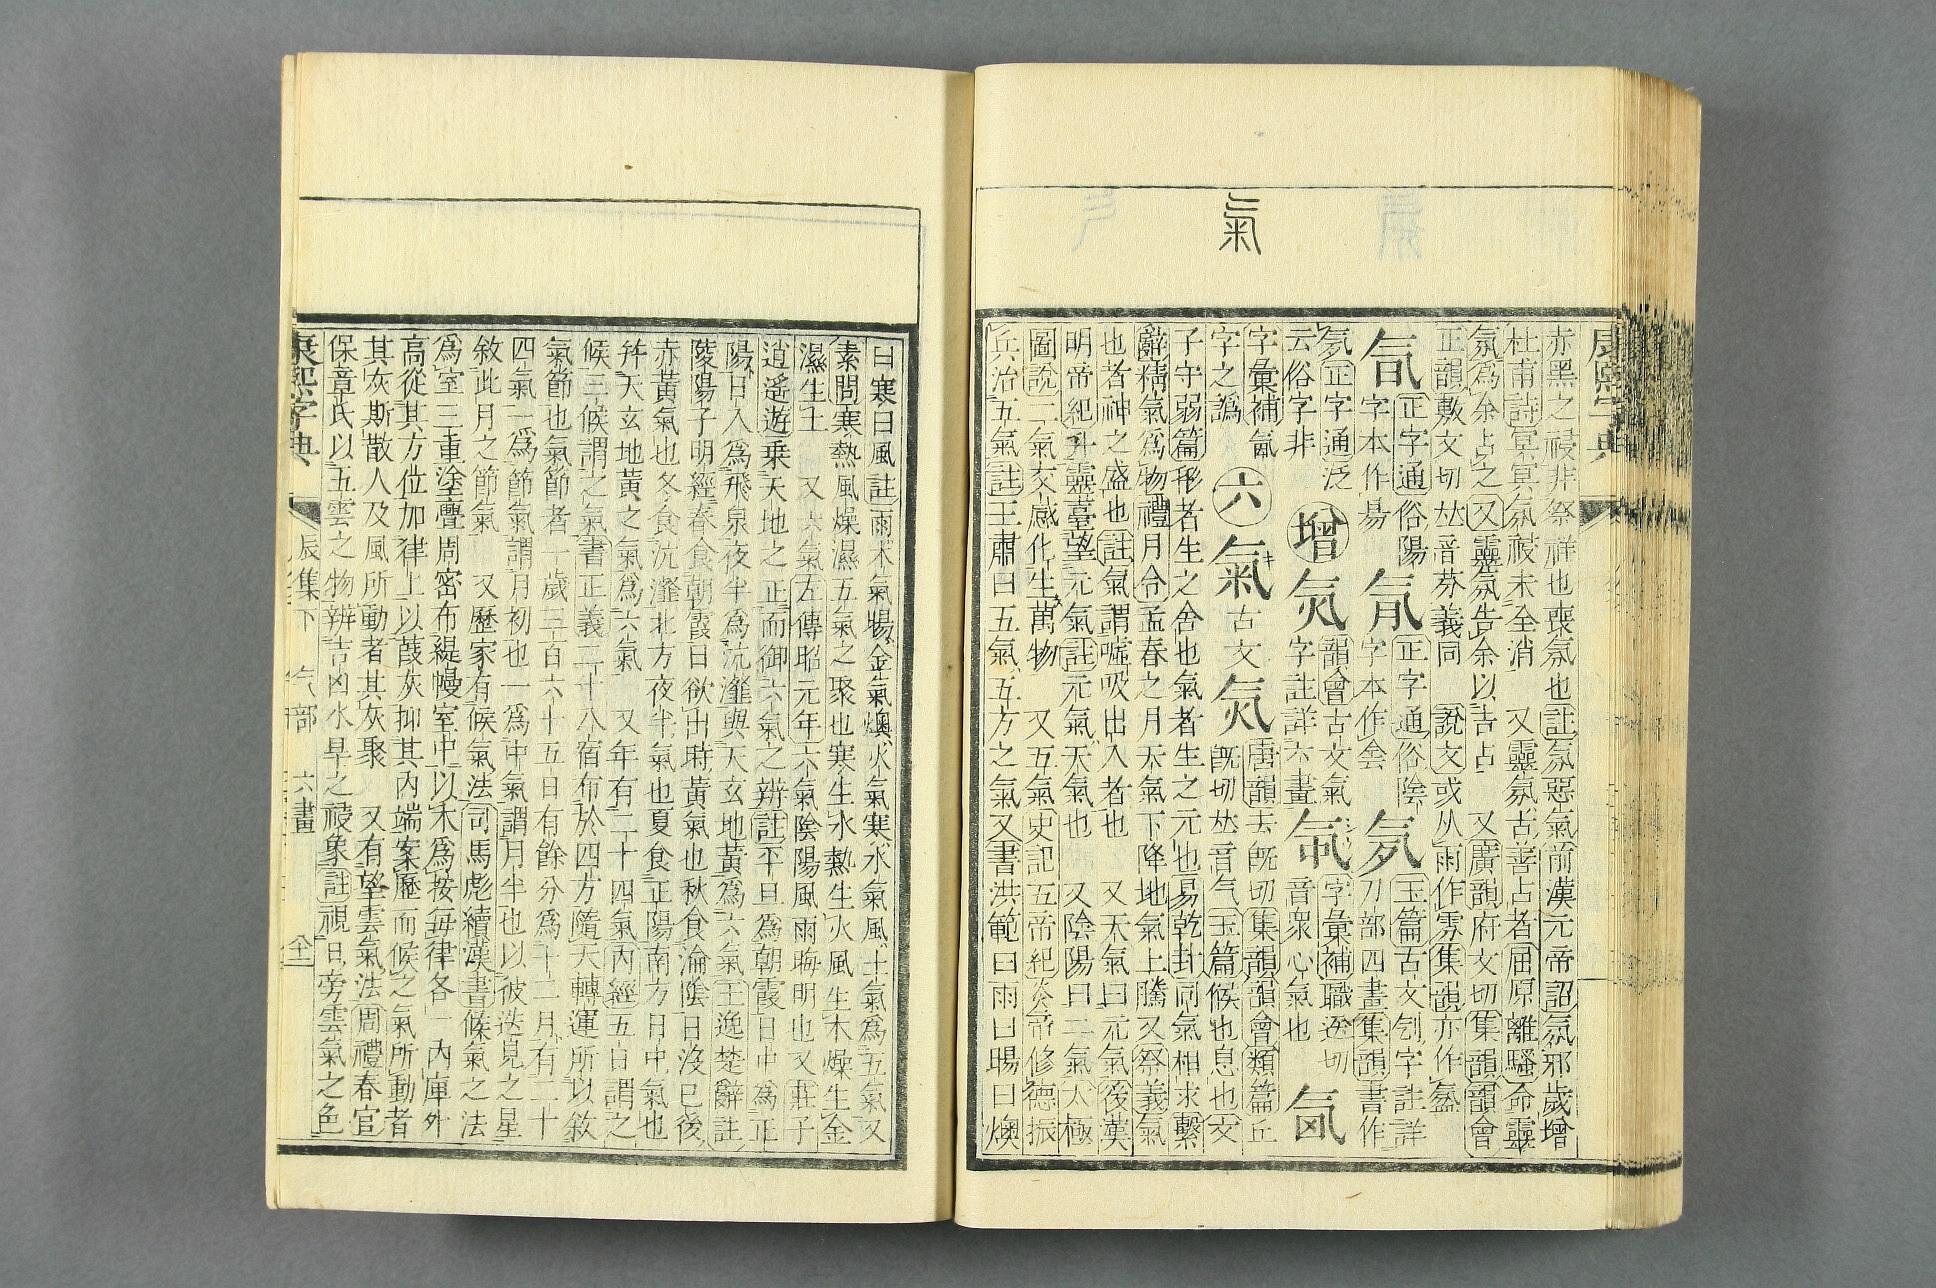 氣
康熙字典
赤黑之祲非祭祥也喪氛也註氛惡氣前漢元帝詔氛邪歲增
杜甫詩冥冥氛祲未全消 又靈氛古善占者屈原離騷命靈
氛爲余占之又靈氛告余以吉占 又廣韻府文切集韻韻會
正韻敷文切𠀤音芬義同 說文或从雨作雰集韻亦作
正字通俗陽
字本作昜
正字通俗陰
字本作侌
氝
玉篇古文刉字註詳
刀部四畫集韻書作
氖正字通泛
云俗字非
增
炁
韻會古文氣
字註詳六畫
字彙補職迓切
音衆心氣也
字彙補氣
字之譌
六
氣
古文
炁
唐韻去旣切集韻韻會類篇丘
旣切𠀤音气玉篇候也息也文
子守弱篇形者生之舍也氣者生之元也易乾卦同氣相求繫
辭精氣爲物禮月令孟春之月天氣下降地氣上騰又祭義氣
也者神之盛也註氣謂噓吸出入者也 又天氣曰元氣後漢
明帝紀升靈臺望元氣註元氣天氣也 又陰陽曰二氣太極
圖說二氣交感化生萬物 又五氣史記五帝紀炎帝修德振
兵治五氣註王肅曰五氣五方之氣又書洪範曰雨曰暘曰燠
曰寒曰風註雨木氣暘金氣燠火氣寒水氣風土氣爲五氣又
素問寒熱風燥濕五氣之聚也寒生水熱生火風生木燥生金
濕生土 又六氣左傳昭元年六氣陰陽風雨晦明也又莊子
逍遙遊乗天地之正而御六氣之辨註平旦爲朝霞日中爲正
陽日入爲飛泉夜半爲沆瀣與天玄地黃爲六氣王逸楚辭註
陵陽子明經春食朝霞日欲出時黃氣也秋食淪陰日沒已後
赤黃氣也冬食沆瀣北方夜半氣也夏食正陽南方日中氣也
幷天玄地黃之氣爲六氣 又年有二十四氣內經五日謂之
候三候謂之氣書正義二十八宿布於四方隨天轉運所以敘
氣節也氣節者一歲三百六十五日有餘分爲十二月有二十
四氣一爲節氣謂月初也一爲中氣謂月半也以彼迭見之星
敘此月之節氣 又歷家有候氣法司馬彪續漢書候氣之法
爲室三重塗釁周密布緹幔室中以木爲按每律各一內庫外
高從其方位加律上以葭灰抑其內端案歷而候之氣所動者
其灰斯散人及風所動者其灰聚 又有望雲氣法周禮春官
保章氏以五雲之物辨吉凶水旱之祲象註視日旁雲氣之色
康熙字典 辰集下 气部 六畫